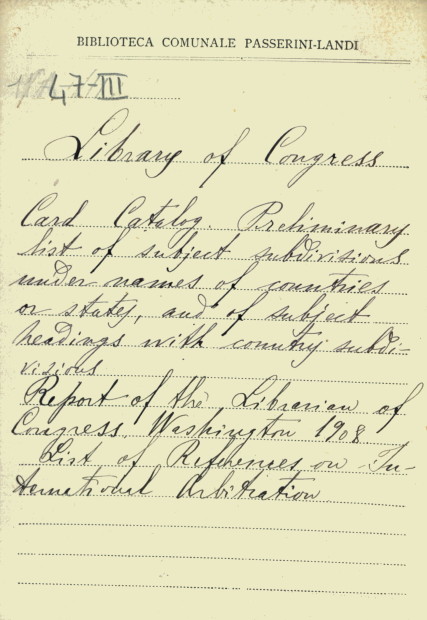 BIBLIOTECA COMUNALE PASSERINI-LANDI
47-III
Library of Congress
Card Catalog. Preliminary
list of subject subdivisions
under names of countries
or states, and of subject
headings with country subdi-
visions
Report of the Librarian of
Congress Washington 1908
List of References on In-
ternational Arbitration